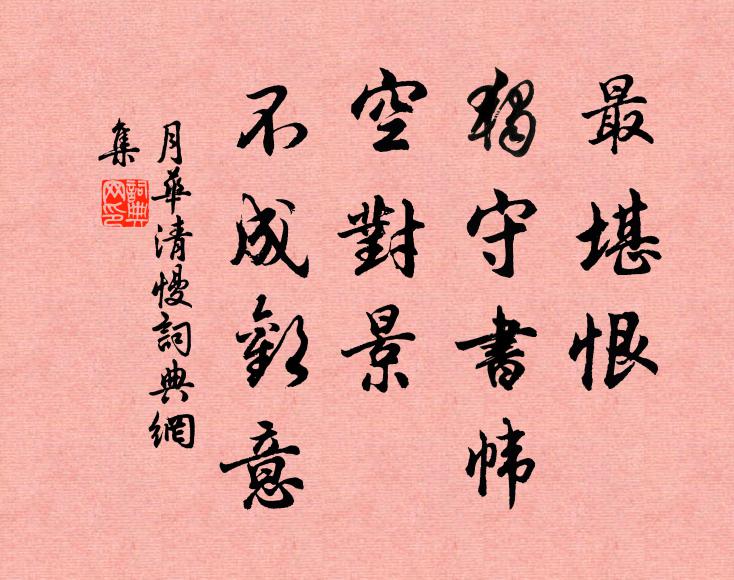 最堪恨
獨守書幃
空對景
不成歡意
月華清慢詞典網
集
詞典
网印